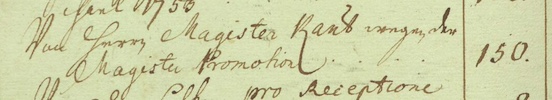 1753
Von Herrn Magister Kauß wegen der
Magister Promotion . . . . . 150.
pro Receptione